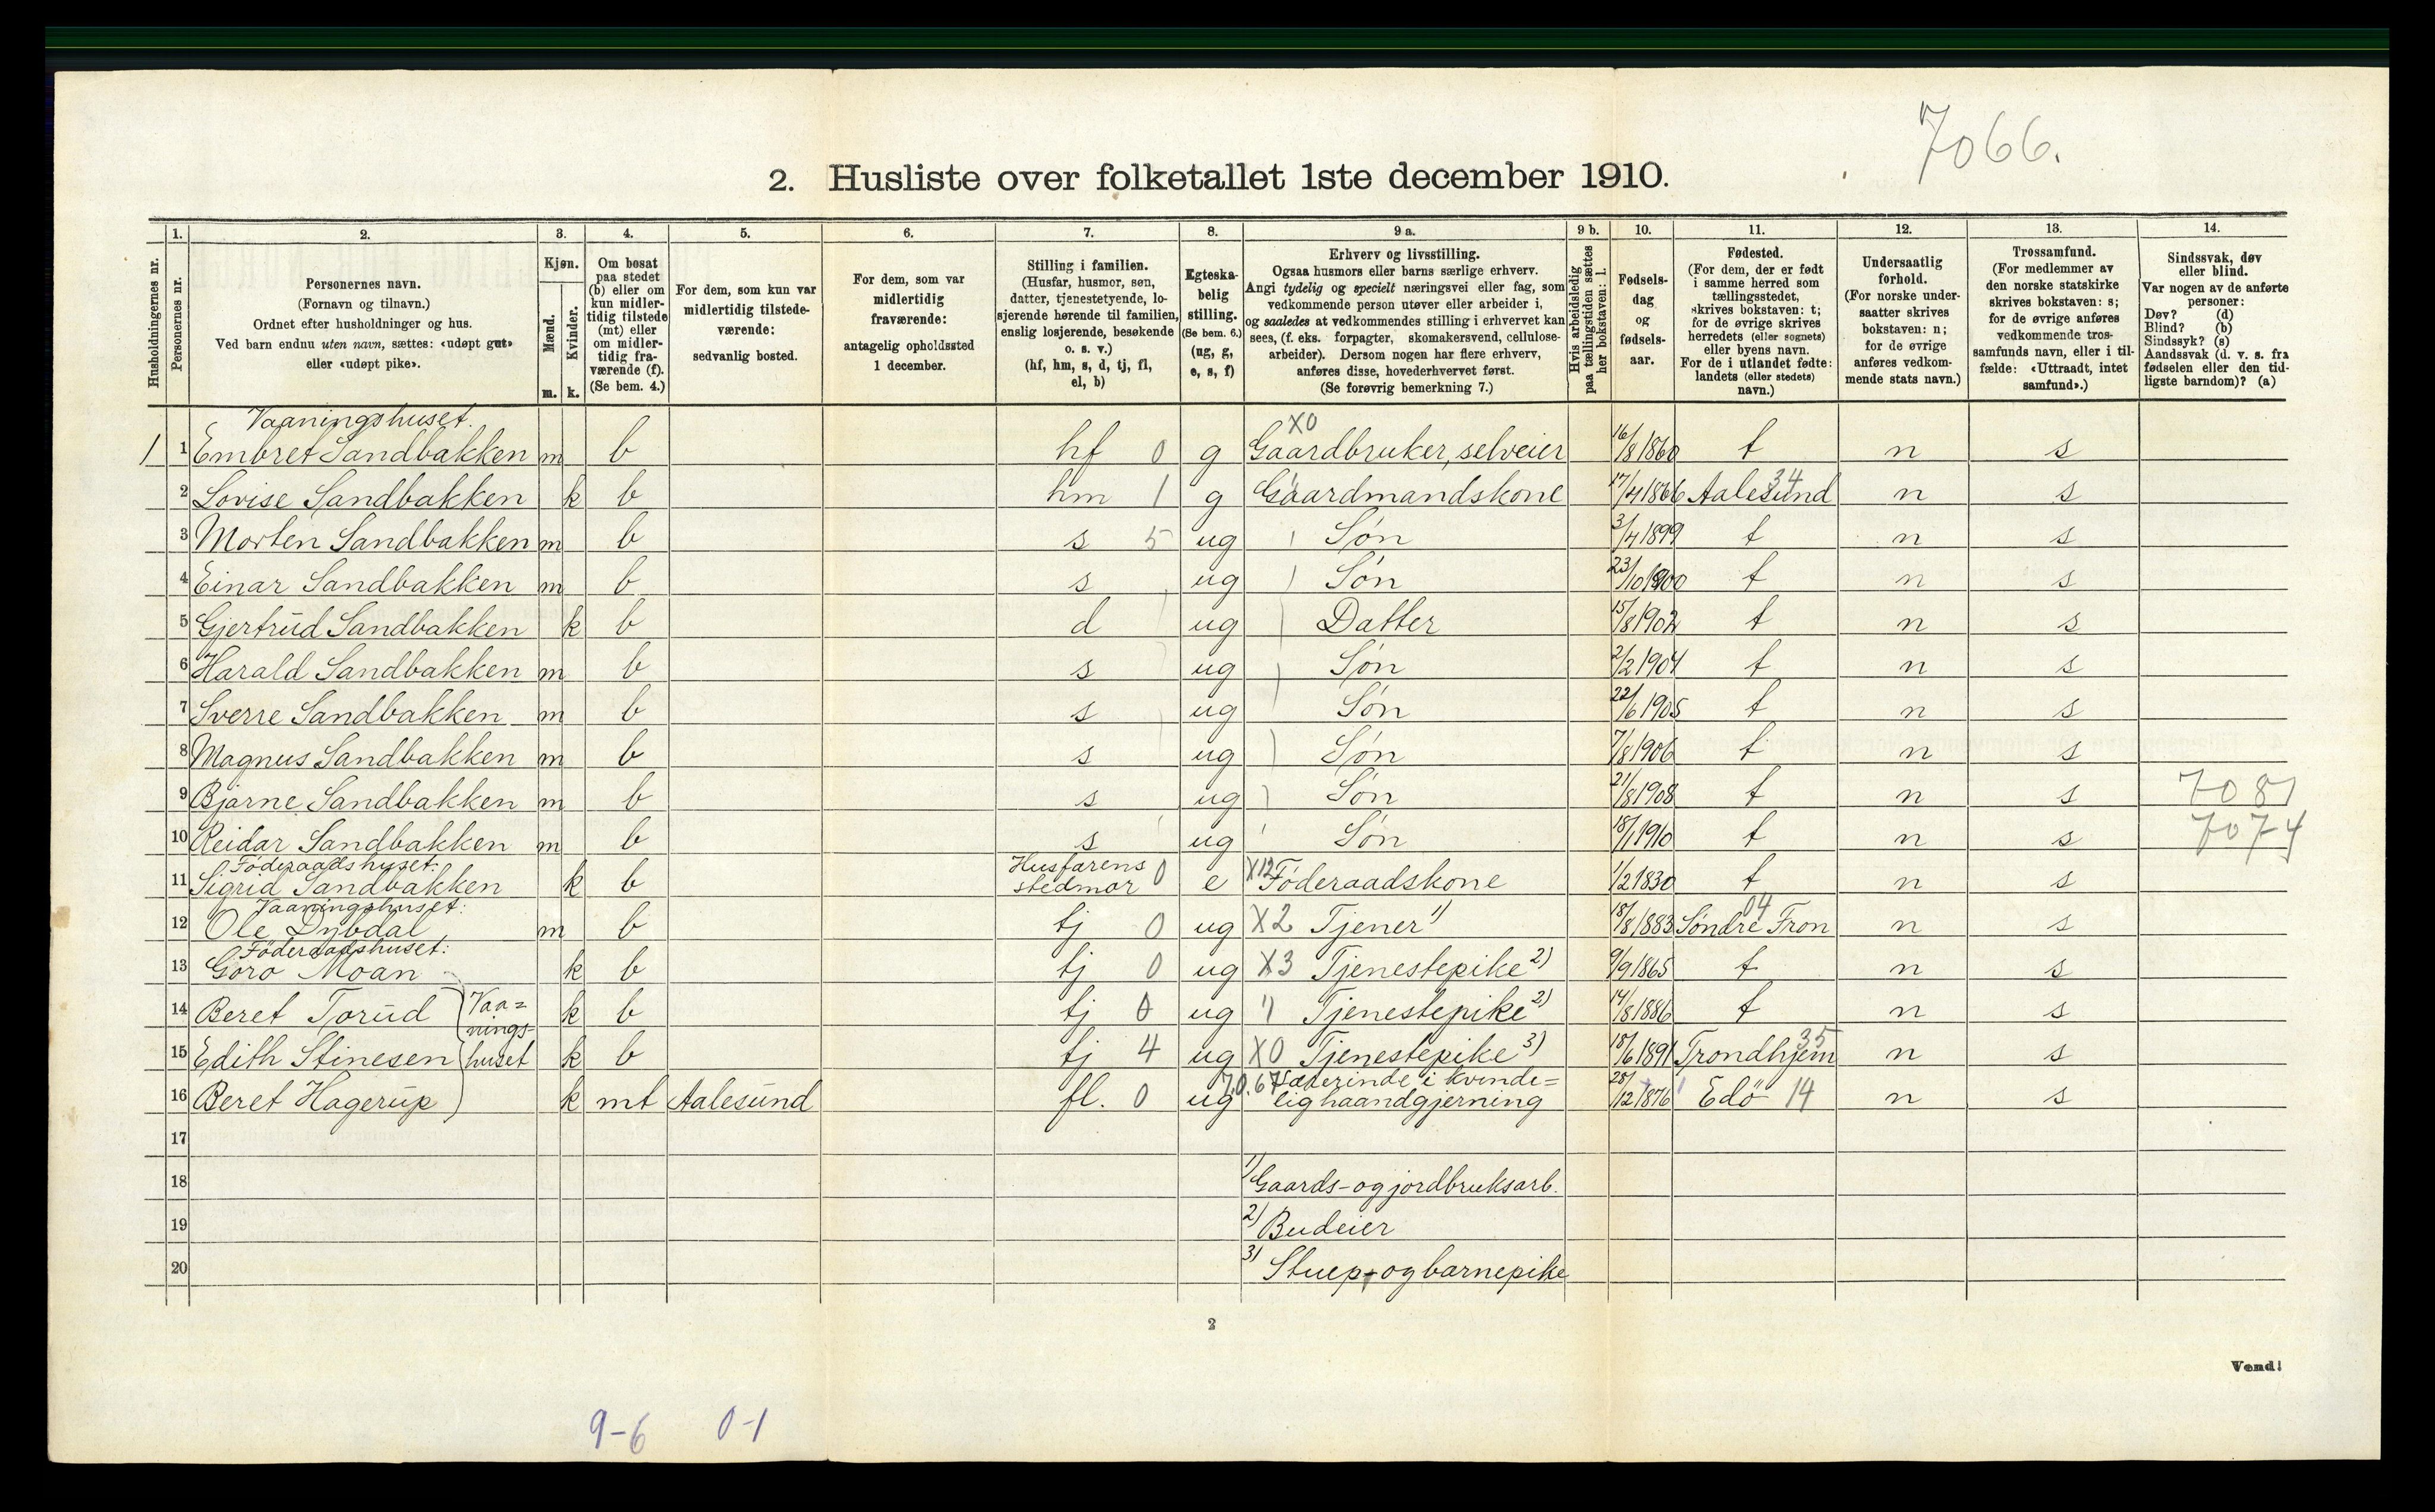 7066.
2. Husliste over folketallet 1ste december 1910.
Husholdningernes nr.
1. Personernes nr.
2. Personernes navn.
(Fornavn og tilnavn.)
Ordnet efter husholdninger og hus.
Ved barn endnu uten navn, sættes: «udøpt gut»
eller «udøpt pike».
3. Kjøn.
Mænd. m.
Kvinder. k.
4. Om bosat
paa stedet
(b) eller om
kun midler-
tidig tilstede
(mt) eller
om midler-
tidig fra-
værende (f).
(Se bem. 4.)
5. For dem, som kun var
midlertidig tilstede-
værende:
sedvanlig bosted.
6. For dem, som var
midlertidig
fraværende:
antagelig opholdssted
1 december.
7. Stilling i familien.
(Husfar, husmor, søn,
datter, tjenestetyende, lo-
sjerende hørende til familien,
enslig losjerende, besøkende
o. s. v.)
(hf, hm, s, d, tj, fl,
el, b)
8. Egteska-
belig
stilling.
(Se bem. 6.)
(ug, g,
e, s, f)
9 a. Erhverv og livsstilling.
Ogsaa husmors eller barns særlige erhverv.
Angi tydelig og specielt næringsvei eller fag, som
vedkommende person utøver eller arbeider i,
og saaledes at vedkommendes stilling i erhvervet kan
sees, (f. eks. forpagter, skomakersvend, cellulose-
arbeider). Dersom nogen har flere erhverv,
anføres disse, hovederhvervet først.
(Se forøvrig bemerkning 7.)
9 b. Hvis arbeidsledig
paa tællingstiden sættes
her bokstaven: l.
10. Fødsels-
dag
og
fødsels-
aar.
11. Fødested.
(For dem, der er født
i samme herred som
tællingsstedet,
skrives bokstaven: t;
for de øvrige skrives
herredets (eller sognets)
eller byens navn.
For de i utlandet fødte:
landets (eller stedets)
navn.)
12. Undersaatlig
forhold.
(For norske under-
saatter skrives
bokstaven: n;
for de øvrige
anføres vedkom-
mende stats navn.)
13. Trossamfund.
(For medlemmer av
den norske statskirke
skrives bokstaven: s;
for de øvrige anføres
vedkommende tros-
samfunds navn, eller i til-
fælde: «Uttraadt, intet
samfund».)
14. Sindssvak, døv
eller blind.
Var nogen av de anførte
personer:
Døv? (d)
Blind? (b)
Sindssyk? (s)
Aandssvak (d. v. s. fra
fødselen eller den tid-
ligste barndom)? (a)
Vaaningshuset. X0
1 1 Embret Sandbakken m b hf 0 g Gaardbruker, selveier 16/8 1860 t n s
2 Lovise Sandbakken k b hm 1 g Gaardmandskone 17/4 1866 Aalesund 34 n s
3 Morten Sandbakken m b s 5 ug Søn 3/4 1899 t n s
4 Einar Sandbakken m b s ug Søn 23/10 1900 t n s
5 Gjertrud Sandbakken k b d ug Datter 15/8 1902 t n s
6 Harald Sandbakken m b s ug Søn 2/2 1904 t n s
7 Sverre Sandbakken m b s ug Søn 22/6 1905 t n s
8 Magnus Sandbakken m b s ug Søn 7/8 1906 t n s
9 Bjarne Sandbakken m b s ug Søn 21/8 1908 t n s 7081
10 Reidar Sandbakken m b s ug Søn 18/1 1910 t n s 7074
Föderaadshuset. Husfarens
11 Sigrid Sandbakken k b stedmor 0 e X12 Föderaadskone 1/2 1830 t n s
Vaaningshuset:
12 Ole Dybdal m b tj 0 ug X2 Tjener 1) 18/8 1883 Søndre Fron 04 n s
Föderaadshuset:
13 Goro Moan k b tj 0 ug X3 Tjenestepike 2) 9/9 1865 t n s
14 Beret Torud (Vaa= k b tj 0 ug " Tjenestepike 2) 14/8 1886 t n s
nings-
15 Edith Stinesen huset k b tj 4 ug X0 Tjenestepike 3) 18/6 1891 Trondhjem 35 n s
70.67 Lærerinde i kvinde=
16 Beret Hagerup k mt Aalesund fl. 0 ug lig haandgjerning 28/12 1876 Edö 14 n s
17
18 1) Gaards- og jordbruksarb.
19 2) Budeier
20 3) Stuep- og barnepike
2
Vend!
9-6 0-1